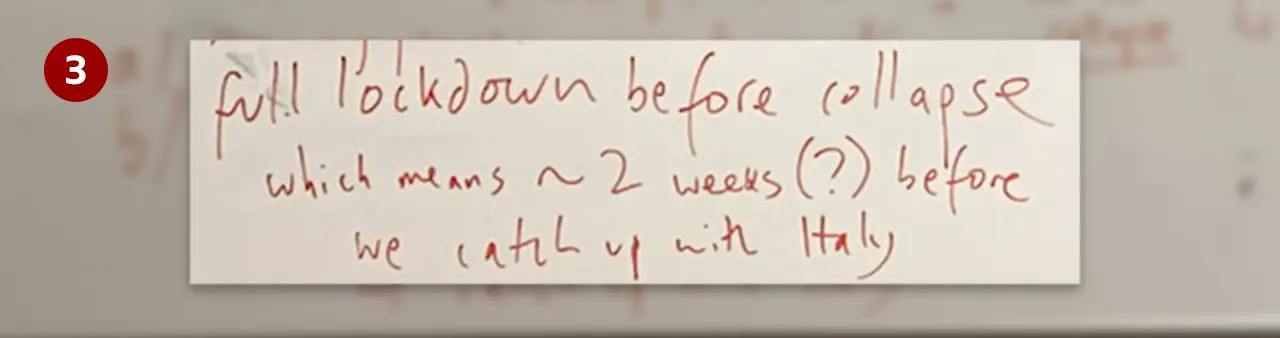 3
full lockdown before collapse
which means ~ 2 weeks (?) before
we catch up with Italy